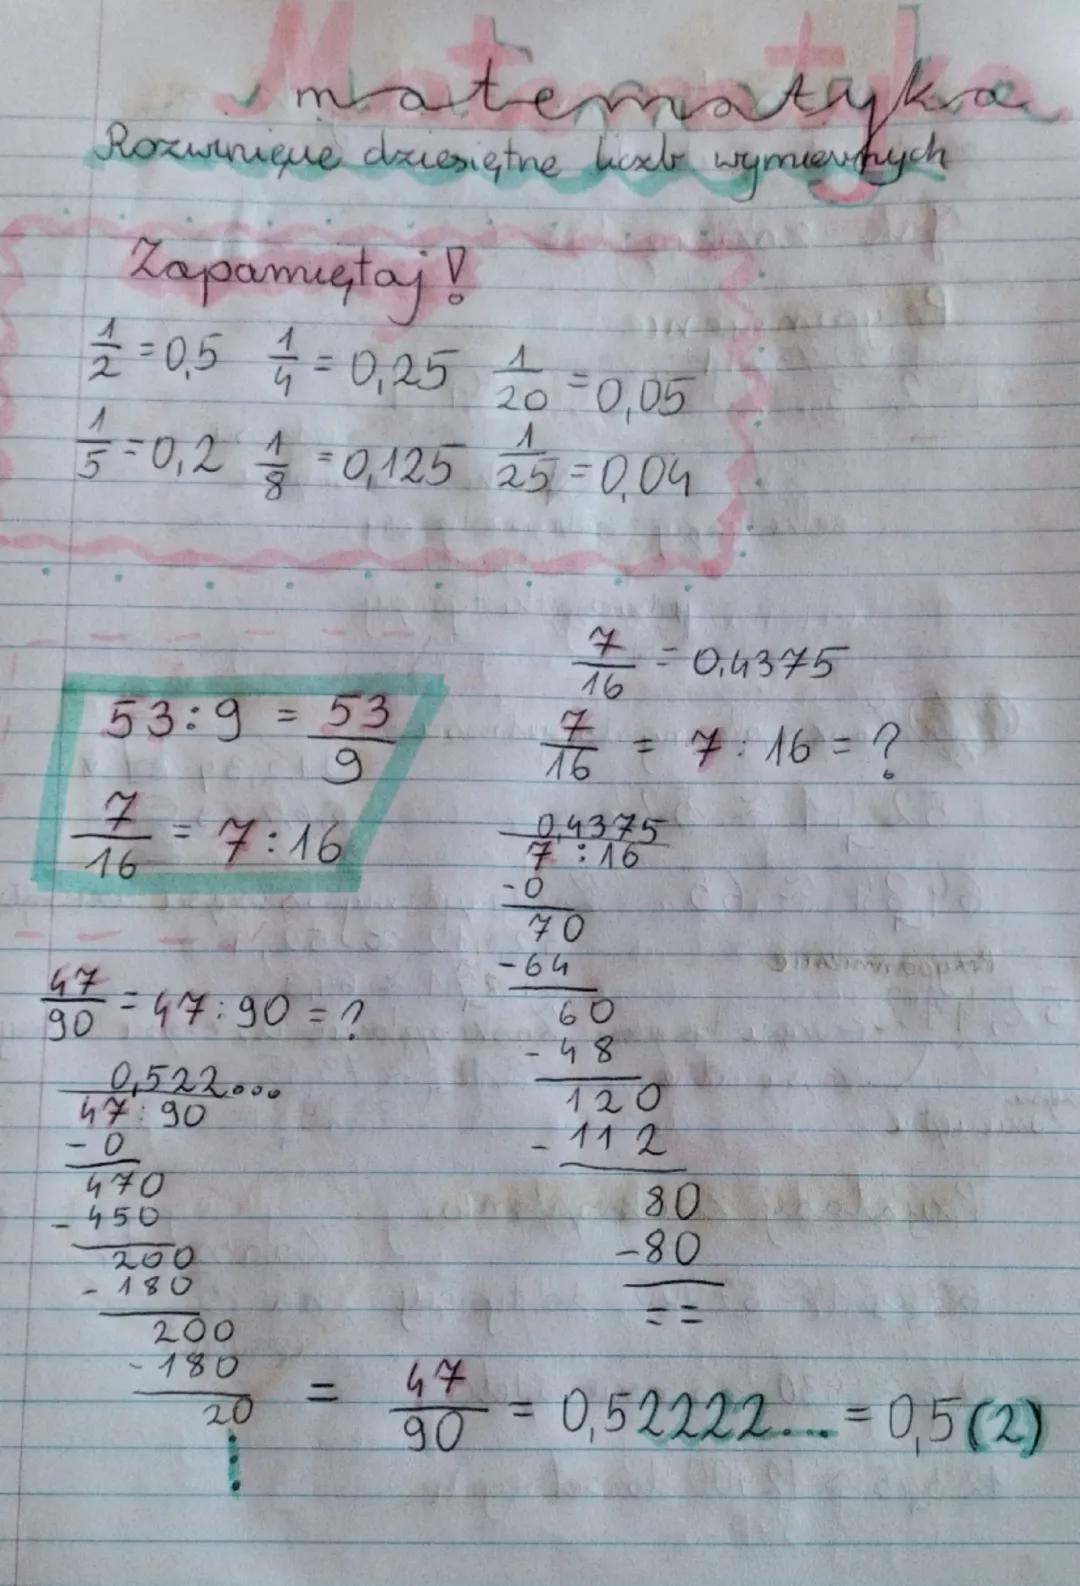 Matematyka
matematyka
Rozwinięcie dziesiętne liczb wymiernych
Zapamiętaj!
1/2 = 0,5 1/4 = 0,25 1/20 = 0,05
1/5 = 0,2 1/8 = 0,125 1/25 = 0,04
53:9 = 53/9
7/16 = 7:16
7/16 = 0,4375
7/16 = 7:16 = ?
0,4375
7:16
-0
70
-64
60
-48
120
-112
80
-80
==
47/90 = 47:90 = ?
0,522...
47:90
-0
470
-450
200
-180
200
-180
20
= 47/90 = 0,52222... = 0,5(2)